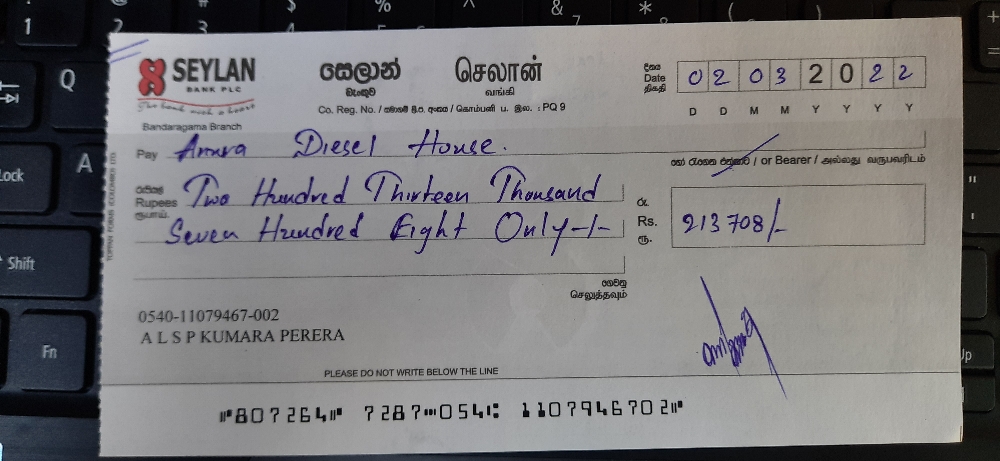 SEYLAN
BANK PLC
The bank with a heart
Bandaragama Branch
සෙලාන්
බැංකුව
செலான்
வங்கி
Co. Reg. No. / සමාගම් ලි.ප. අංකය / கொம்பனி ப. இல. : PQ 9
දිනය
Date
திகதி
0 2 0 3 2 0 2 2
D D M M Y Y Y Y
Pay Anura Diesel House.
/ or Bearer / அல்லது வருபவரிடம்
රුපියල්
Rupees Two Hundred Thirteen Thousand
ரூபாய்
Seven Hundred Eight Only-/-
රු.
Rs. 213 708/-
ரூ.
ගෙවනු
செலுத்தவும்
0540-11079467-002
A L S P KUMARA PERERA
PLEASE DO NOT WRITE BELOW THE LINE
⑈807264⑈ 7287⑉054⑆ 1107946702⑈
TOPPAN FORMS (COLOMBO) LTD
Q
A
Lock
Shift
Fn
Up